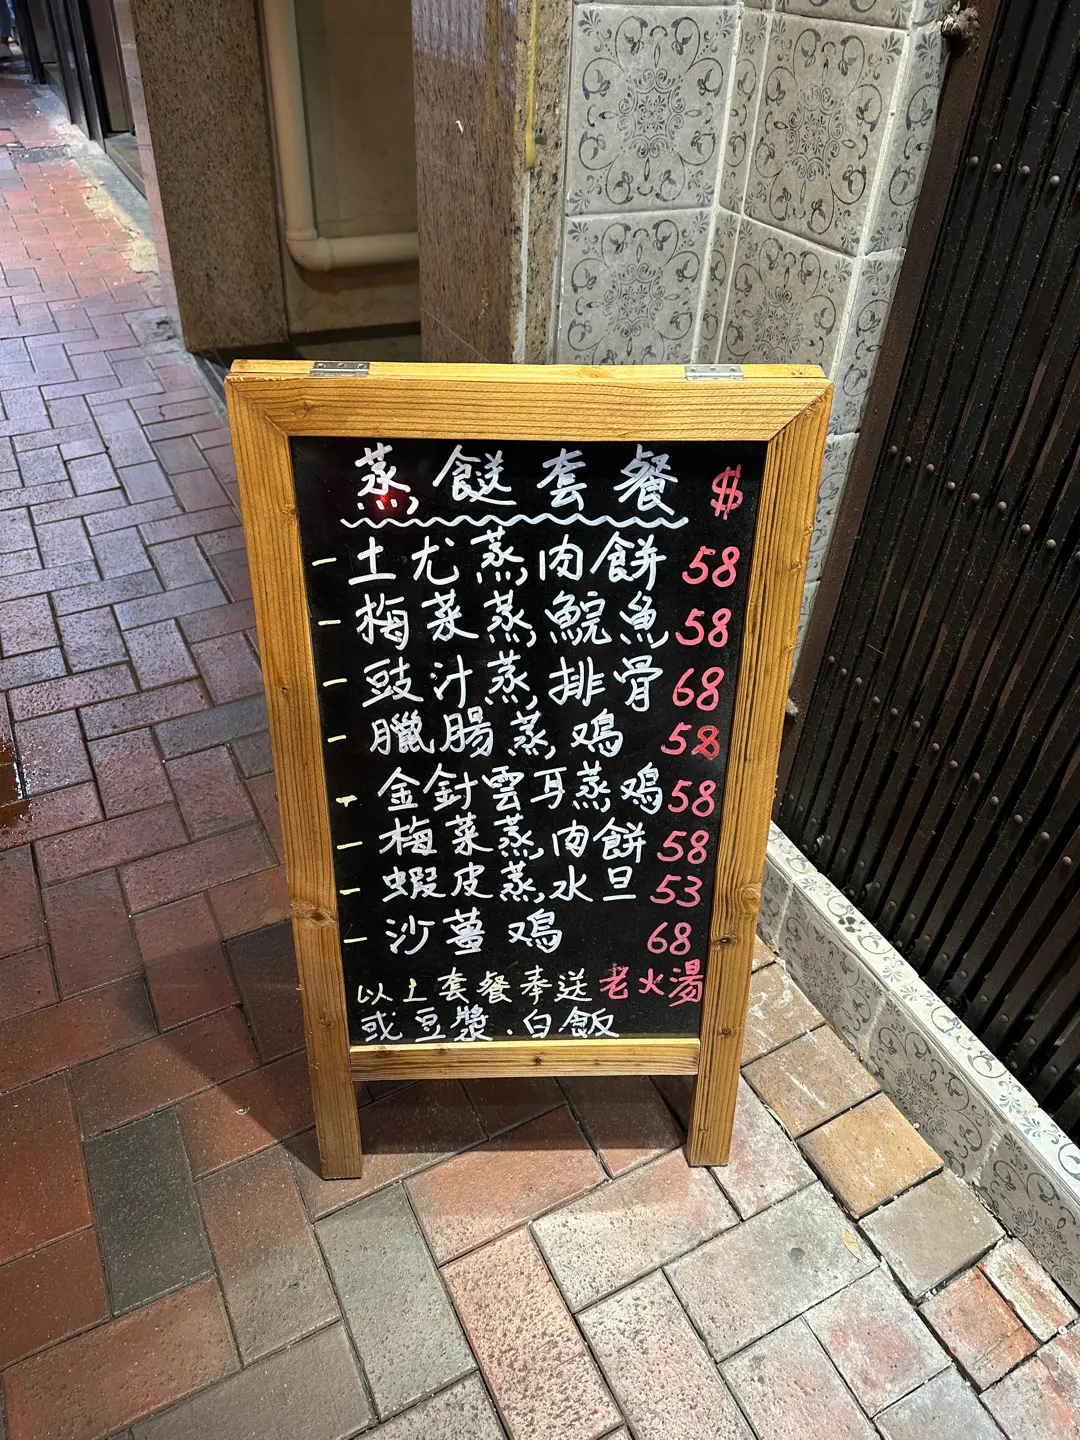 蒸餸套餐 $
- 土尤蒸肉餅 58
- 梅菜蒸鯇魚 58
- 豉汁蒸排骨 68
- 臘腸蒸鸡 58
- 金針雲耳蒸鸡 58
- 梅菜蒸肉餅 58
- 蝦皮蒸水旦 53
- 沙薑鸡 68
以上套餐奉送老火湯
或豆漿、白飯